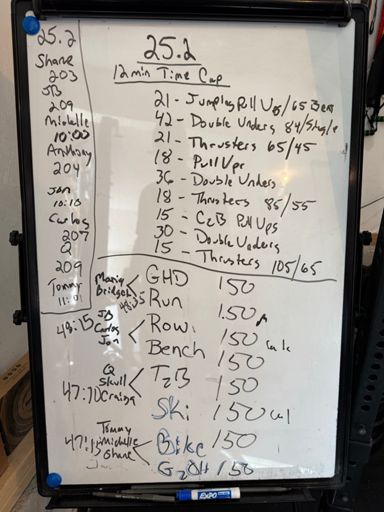 25.2
Shane
203
JB
209
Michelle
10:00
Anthony
204
Jon
10:10
Carlos
207
Q
209
Tommy
11:01
25.2
12 min Time Cap
21 - Jumping Pull Ups / 65 Bare
42 - Double Unders 84/Single
21 - Thrusters 65/45
18 - Pull Ups
36 - Double Unders
18 - Thrusters 85/55
15 - C2B Pull Ups
30 - Double Unders
15 - Thrusters 105/65
Maria
Bridget
GHD 150
Run 150
48:15 JB
Carlos
Jon
Row 150 Cals
Bench 150
Q
Skull
Craig
T2B 150
Ski 150 Cal
Tommy
47:15 Michelle
Shane
Bike 150
G2OH 150
EXPO